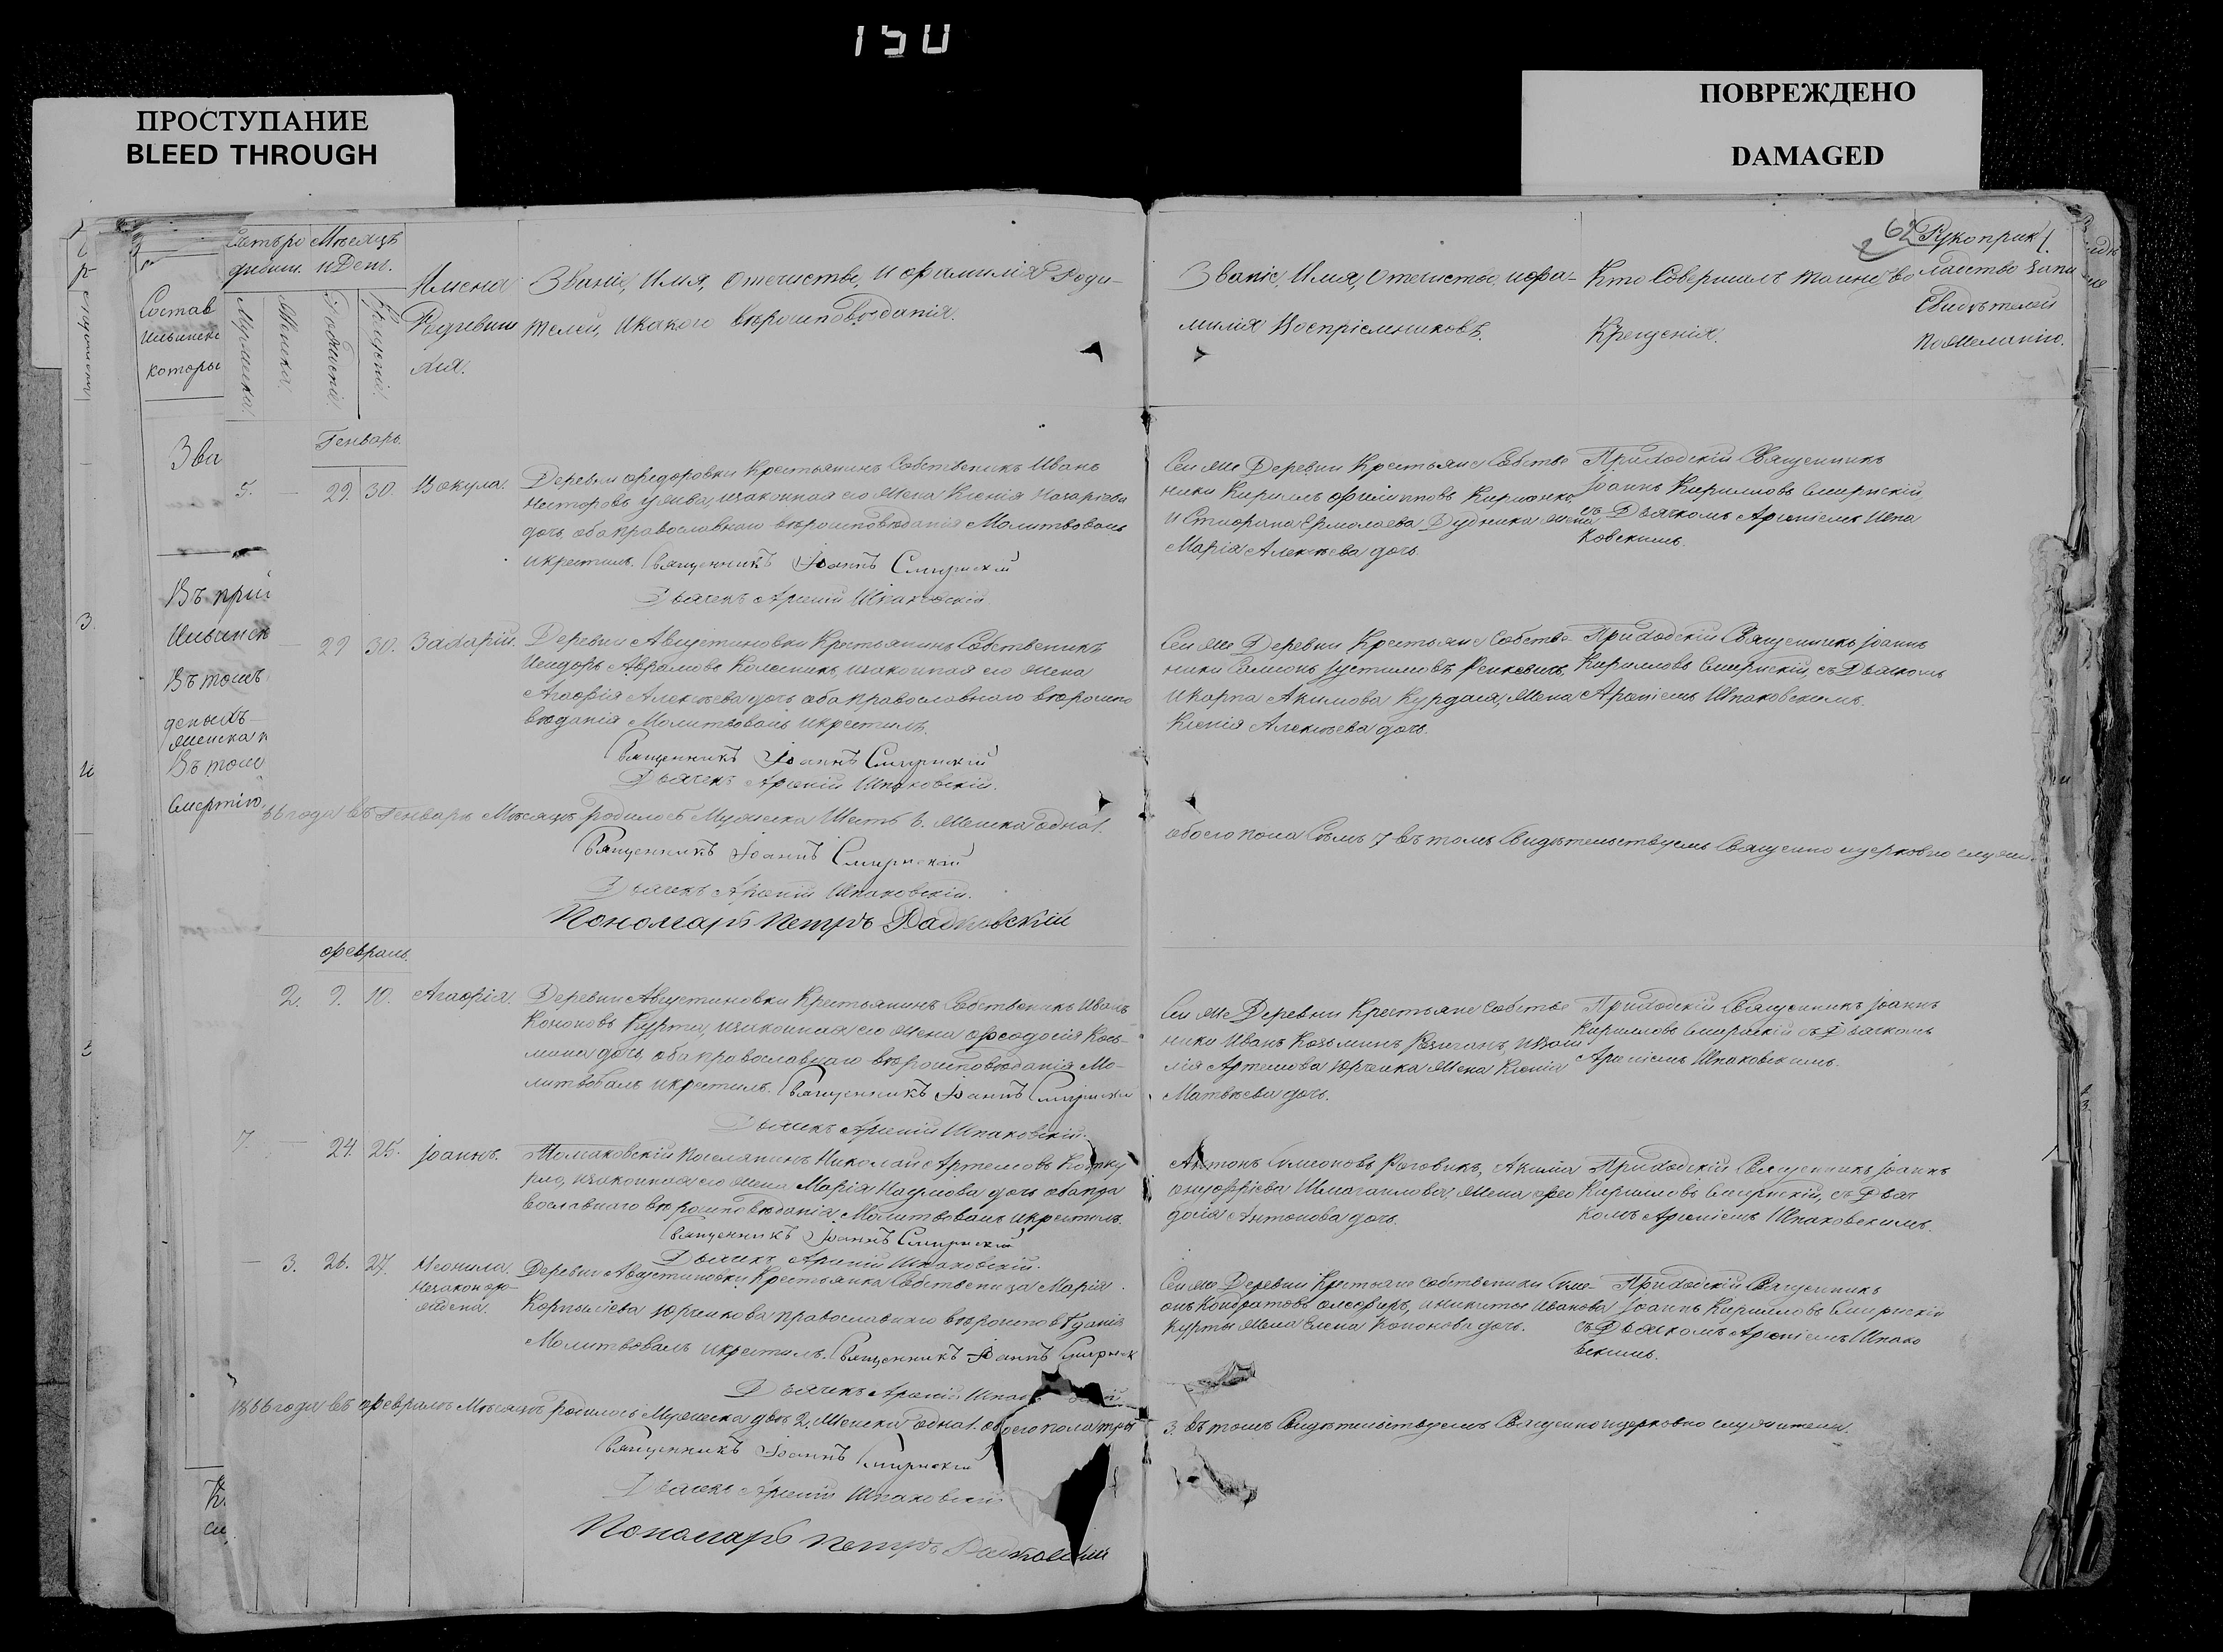 150
ПРОСТУПАНИЕ
BLEED THROUGH
ПОВРЕЖДЕНО
DAMAGED
Мѣсяцъ
и День.
Мужеска.
Женска.
Рожденія.
Крещенія.
Имена
Родивши
хся.
Званіе, Имя, Отечиство, и фамилія Роди-
телей, и какого вѣроисповѣданія.
Званіе, Имя, Отечиство, и фа-
милія Воспріемниковъ.
Кто Совершалъ таинство
Крещенія.
Рукоприк
ладство запи
Свидѣтелей
по желанію.
Состав
Ильинско
которы
Зва
Въ прий
Ильинск
Въ томъ
Въ томъ
Смертію
Генварь.
5. — 29. 30. Вакула.
Деревни Федоровки Крестьянинъ Собственикъ Иванъ
Несторовъ законная его жена Ксенія Назаріева
дочь, оба православнаго вѣроисповѣданія Молитвовалъ
и крестилъ. Священникъ Іоаннъ Смирнскій
Дьячекъ Арсеній Шпаковскій
Сей же Деревни Крестьяне Собстве
ники Кирилъ Филиповъ Кириенко
и Стефана Ермолаева Дудника жена
Марія Алексѣева дочь.
Приходскій Священникъ
Іоаннъ Кирилловъ Смирнскій
съ Дьячкомъ Арсеніемъ Шпа
ковскимъ.
— 29 30. Захарій.
Деревни Августиновки Крестьянинъ Собственикъ
Исидоръ Аврамовъ Колесникъ, законная его жена
Агафія Алексѣева дочь, оба православнаго вѣроиспо
вѣданія Молитвовалъ и крестилъ.
Священникъ Іоаннъ Смирнскій
Дьячекъ Арсеній Шпаковскій.
Сей же Деревни Крестьяне Собстве-
ники Симіонъ Іустимовъ
и Карпа Акимова жена
Ксенія Алексѣева дочь.
Приходскій Священникъ Іоаннъ
Кирилловъ Смирнскій, съ Дьячкомъ
Арсеніемъ Шпаковскимъ.
66 года въ Генварѣ Мѣсяцѣ родилось Мужеска Шесть 6. Женска одна 1.
обоего пола Семъ 7 въ томъ Свидѣтельствуемъ Священно и церковно служи
Священникъ Іоаннъ Смирнскій
Дьячекъ Арсеній Шпаковскій.
Пономарь Петръ Радковскій
Февраль.
2. 9. 10. Агафія.
Деревни Августиновки Крестьянинъ Собственикъ Иванъ
Кононовъ Курта, законная его жена Феодосія Кось-
мина дочь, оба православнаго вѣроисповѣданія Мо-
литвовалъ и крестилъ. Священникъ Іоаннъ Смирнскій
Дьячекъ Арсеній Шпаковскій.
Сей же Деревни Крестьяне Собстве
ники Иванъ Козьминъ
Артемова Юрченка жена Ксенія
Матвѣева дочь.
Приходскій Священникъ Іоаннъ
Кирилловъ Смирнскій съ Дьячкомъ
Арсеніемъ Шпаковскимъ.
7. — 24. 25. Іоаннъ.
Поселянинъ Николай Артемовъ
законная его жена Марія Наумова дочь оба пра
вославнаго вѣроисповѣданія Молитвовалъ и крестилъ.
Священникъ Іоаннъ Смирнскій
Дьячекъ Арсеній Шпаковскій.
Антонъ Симеоновъ Роговикъ, Акима
Онуфріева жена Фео
досія Антонова дочь.
Приходскій Священникъ Іоаннъ
Кирилловъ Смирнскій, съ Дьяч
комъ Арсеніемъ Шпаковскимъ.
— 3. 26. 27. Неонила.
Незаконоро-
ждена.
Деревни Августиновки Крестьянка Собственица Марія
Корнилієва Юрченкова православнаго вѣроисповѣданія
Молитвовалъ и крестилъ. Священникъ Іоаннъ Смирнск
Дьячекъ Арсеній
Сей же Деревни Крестьяне Собственики Симе-
онъ Кондратовъ и Никиты Иванова
Курты жена Елена Кононова дочь.
Приходскій Священникъ
Іоаннъ Кирилловъ Смирнскій
съ Дьячкомъ Арсеніемъ Шпако
вскимъ.
1866 года въ Февралѣ Мѣсяцѣ родилось Мужеска двѣ 2. Женска одна 1. обоего пола три
3. въ томъ Свидѣтельствуемъ Священно и церковно служители.
Священникъ Іоаннъ Смирнскій
Дьячекъ Арсеній Шпаковскій
Пономарь Петръ Радковскій